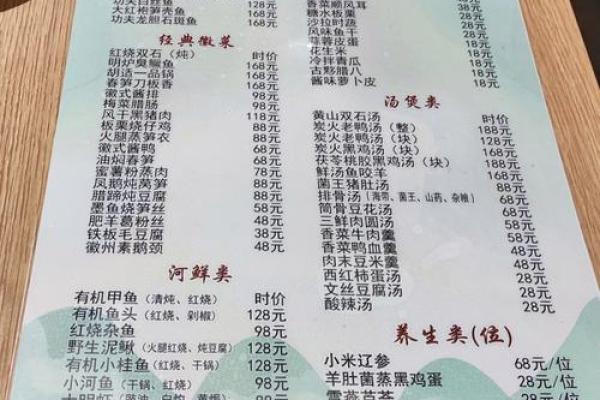 大红袍笋壳鱼 168元
功夫龙胆石斑鱼 168元
经典徽菜
红烧双石（炖） 时价
明炉臭鳜鱼 168元
胡适一品锅 168元
春笋刀板香 168元
徽式酱排
梅菜腊肠
风干黑猪肉 118元
板栗烧仔鸡 88元
火腿蒸笋衣 88元
徽式鸭酱 68元
油焖春笋 68元
蜜薯粉蒸肉 78元
凤鹅炖莴笋 58元
腊蹄炖豆腐 58元
墨鱼烧笋丝 58元
肥羊葛粉丝 48元
铁板毛豆腐 48元
徽州素鹅颈 48元
河鲜类
有机甲鱼（清炖、红烧） 时价
有机鱼头（红烧、剁椒） 128元
红烧杂鱼 98元
野生泥鳅（火腿红烧、炖豆腐） 128元
有机小桂鱼（红烧、干锅） 128元
小河鱼（干锅、红烧） 98元
香菜顺风耳 38元
糖水板栗 38元
沙拉时蔬 28元
风味鱼干 28元
荨蓉皮蛋 28元
花生米 28元
冷拌青瓜 28元
古黟腊八 28元
酱味萝卜皮 18元
汤煲类
黄山双石汤 188元
炭火老鸭汤（整） 188元
炭火老鸭汤（块） 128元
炭火黑鸡汤（块） 168元
茯苓桃胶黑鸡汤（块） 188元
鲜汤鱼咬羊 98元
菌王猪肚汤 58元
排骨汤（海带、菌王、山药、杂粮） 58元
筒骨豆花汤 58元
三鲜肉圆汤 58元
香菜牛肉羹 58元
香菜鸭血羹 38元
肉末豆米羹 38元
西红柿蛋汤 28元
文丝豆腐汤 28元
酸辣汤 28元
养生类(位)
小米辽参 68元/位
羊肚菌蒸黑鸡蛋 28元/位